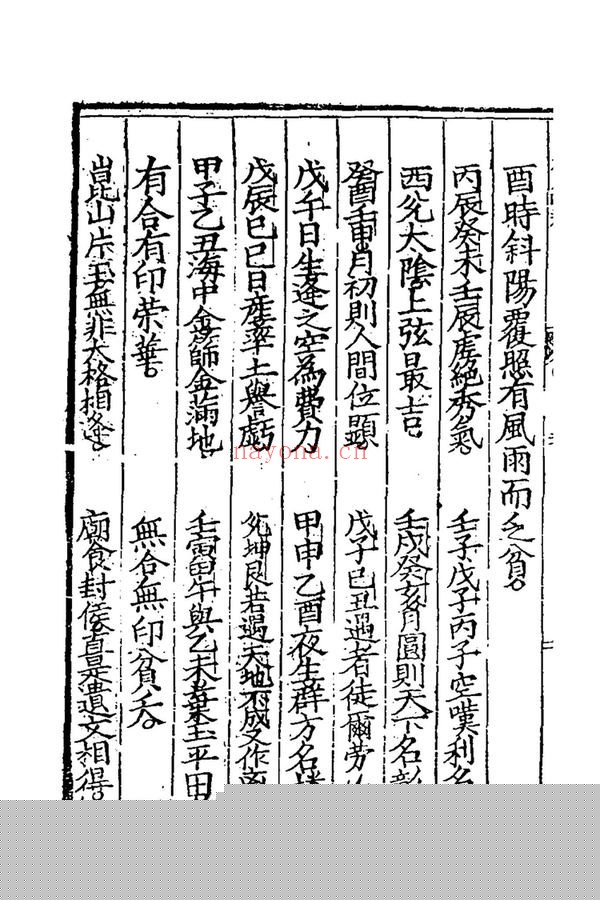 酉時斜陽覆照有風雨而乏貧
丙辰癸未壬辰虛絕秀氣 壬子戊子丙子空嘆利名
西兌太陰上弦最吉 壬戌癸亥月圓則天下名彰
癸酉壬申月初則人間位顯 戊子己丑遇者徒爾勞
戊午日生逢之空為費力 甲申乙酉夜生群方名
戊辰己巳日產率土譽 坤艮若遇天地不成文作
甲子乙丑海中金篩金滿地 壬寅 與乙未 玉平田
有合有印荣華 無合無印貧夭
崑山片玉無非大格相逢 廟食封侯直是遺文相得
nayona.cn